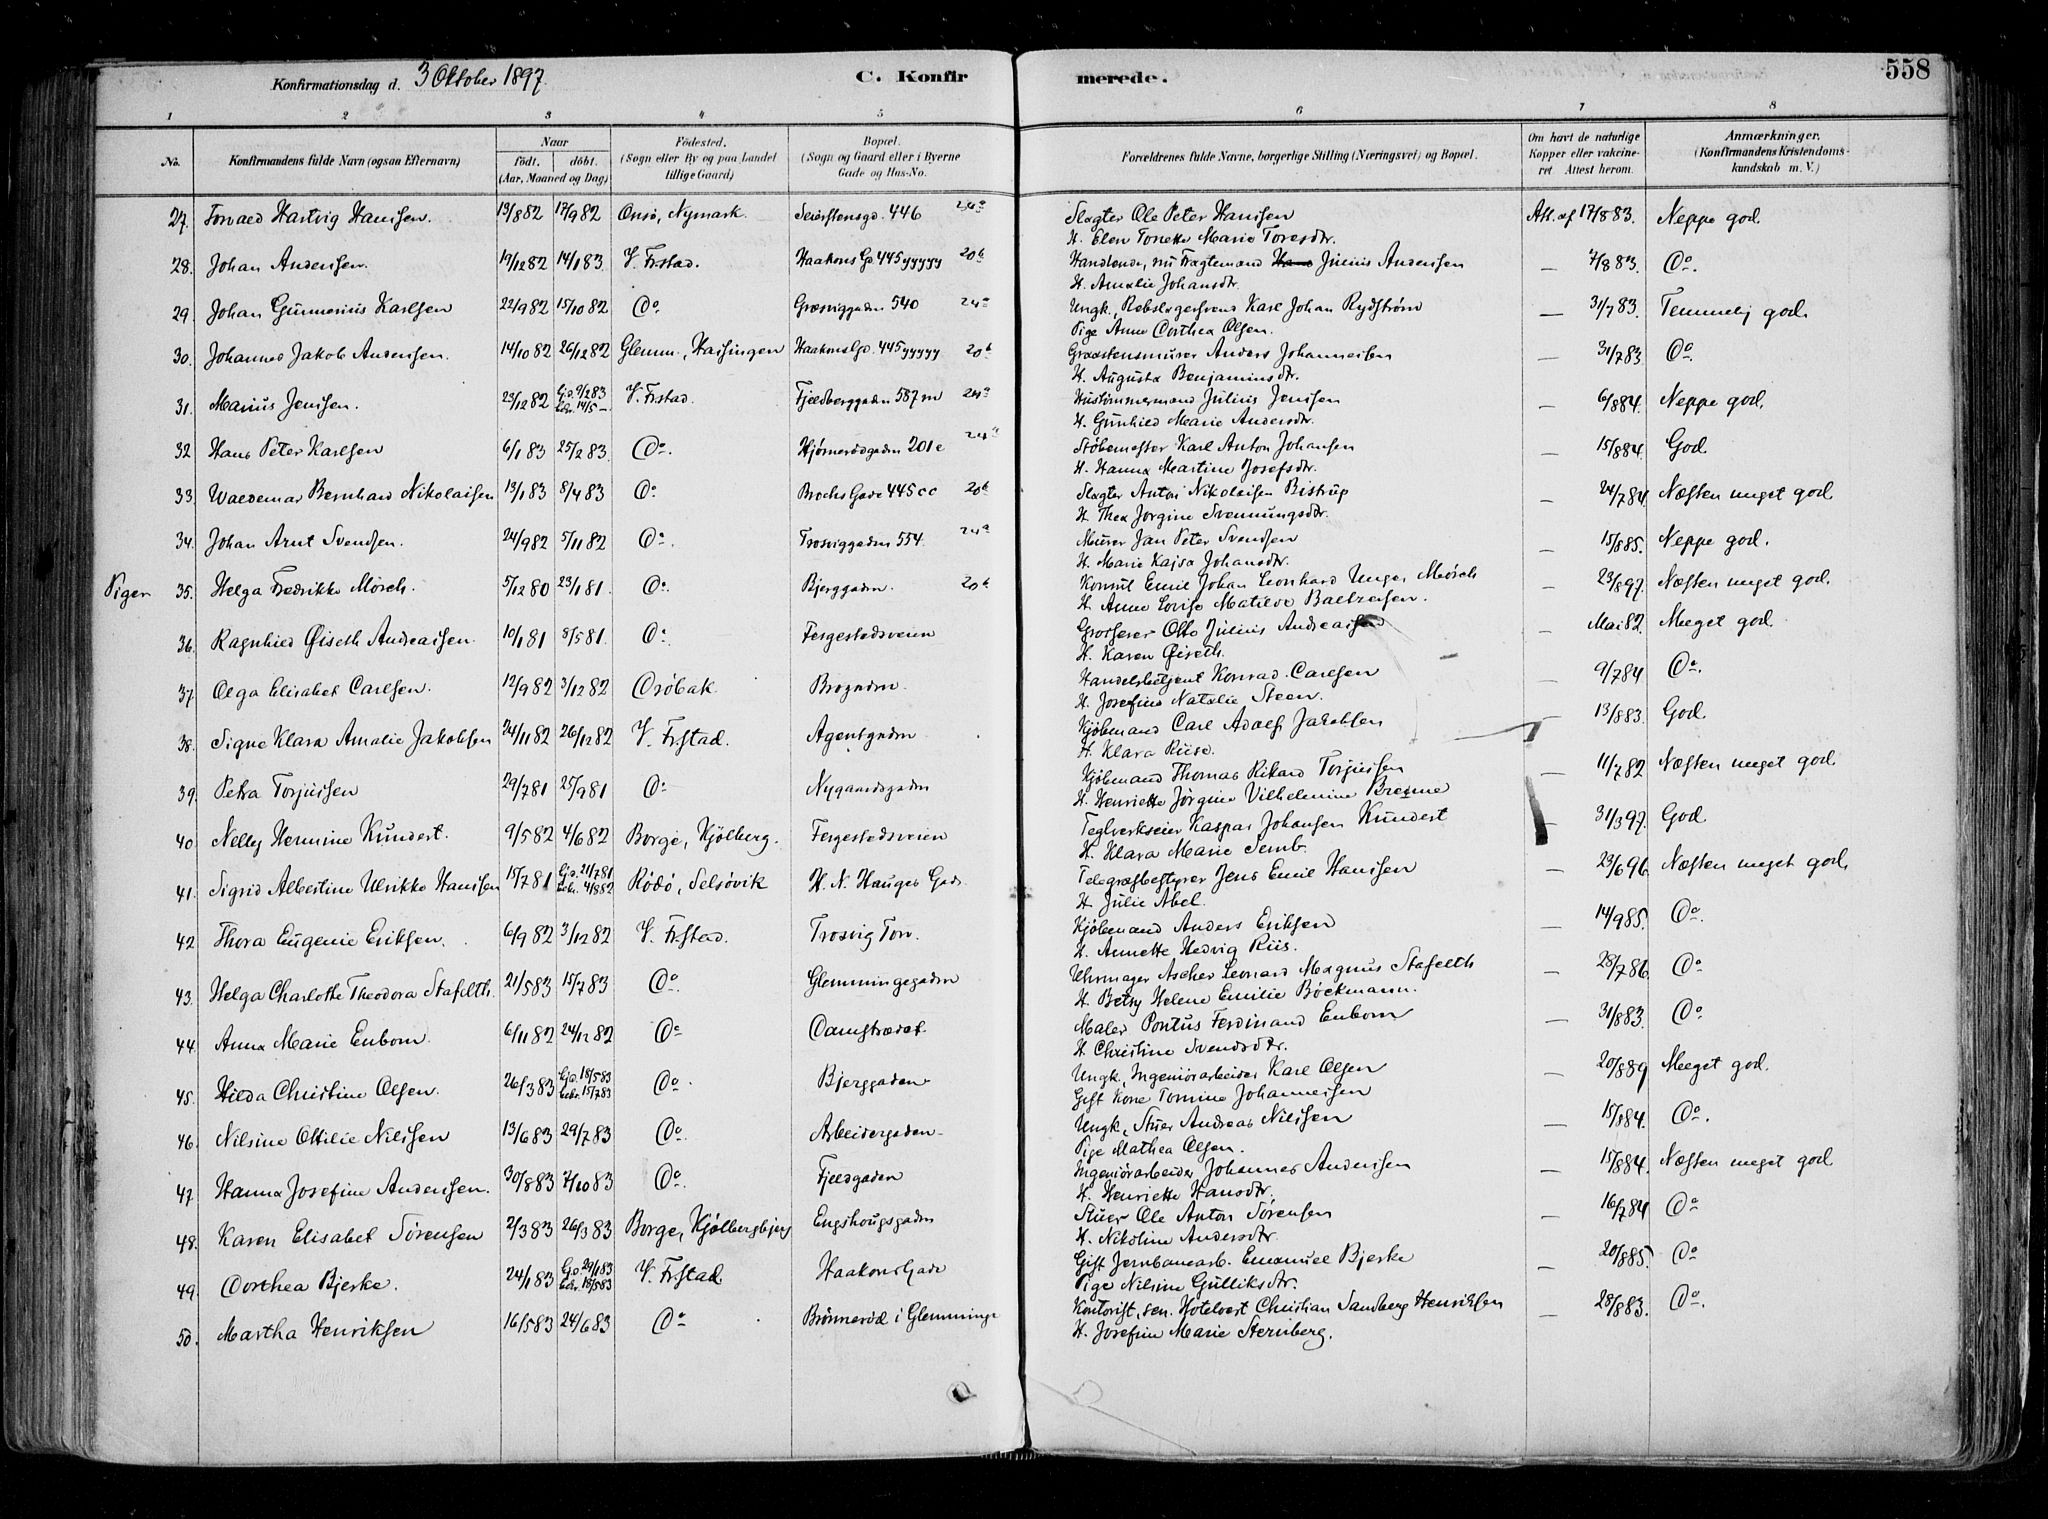 Konfirmationsdag d. 3 Oktober 1897. C. Konfirmerede. 558
1 2 3 4 5 6 7 8
No. Konfirmandens fulde Navn (ogsaa Efternavn) Naar födt. döbt. (Aar, Maaned og Dag) Födested. (Sogn eller By og paa Landet tillige Gaard) Bopæl. (Sogn og Gaard eller i Byerne Gade og Hus-No. Forældrenes fulde Navne, borgerlige Stilling (Næringsvei) og Bopæl. Om havt de naturlige Kopper eller vakcineret. Attest herom. Anmærkninger. (Konfirmandens Kristendomskundskab m. V.)
27. Torvald Hartvig Hanssen. 13/8 82 17/9 82 Onsø, Nymark. 446 24a Slagter Ole Peter Hanssen Att. af 17/8 83. Neppe god.
H. Elen Tonette Marie Toresdtr.
28. Johan Anderssen. 19/12 82 14/1 83. V. Frstad. Haakons Gd. 445yyyyy 20b Handlende, nu Fragtemand Julius Anderssen — 7/8 83. Do.
H. Amalie Johansdtr.
29. Johan Gunnerius Karlsen 22/9 82 15/10 82 Do. Græsviggaden 540 24a Ungk., Rebslagersvend Karl Johan Rydstrøm — 31/7 83. Temmelig god.
Pige Anne Dorthea Olsen.
30. Johannes Jakob Anderssen. 14/10 82 26/12 82 Glemm., Hassingen Haakons Gd. 445yyyyy 20b Graastensmurer Anders Johannessen — 31/7 83 Do.
H. Augusta Benjaminsdtr.
31. Marius Jenssen. 23/12 82 Hjd. 9/2 83 bekr. 14/5 — V. Frstad. Fjeldberggaden 587 m 24a Hustømmermand Julius Jenssen — 6/8 84. Neppe god.
H. Gunhild Marie Andersdtr.
32 Hans Peter Karlsen 6/1 83 25/2 83. Do. Hjørnerødsgaden 201e 24a Støbemester Karl Anton Johansen — 15/8 84. God.
H. Hanna Martine Josefsdtr.
33. Waldemar Bernhard Nikolaisen 13/1 83 8/4 83 Do Brochs Gade 445cc 20b Slagter Anton Nikolaisen Bistrup — 24/7 84. Næsten meget god.
H. Thea Jorgine Svennungsdtr.
34. Johan Arnt Svendsen. 24/9 82 5/11 82 Do. Trosviggaden 554. 24a Murer Jan Peter Svendsen — 15/8 85. Neppe god.
H. Marie Kajsa Johansdtr.
Piger 35. Helga Fredrikke Mörch. 5/12 80 23/1 81. Do. Bjerggaden. 20b Konsul Emil Johan Leonhard Unger Mörch — 23/8 97. Næsten meget god.
H. Anne Lovise Matilde Baltzersen.
36. Ragnhild Øiseth Andreassen. 10/1 81 8/5 81. Do. Fergestedsveien Grosserer Otto Julius Andreassen — Mai 82. Meget god.
H. Karen Øiseth.
37. Olga Elisabet Carlsen. 12/9 82 3/12 82 Drøbak Brogaden. Handelsbetjent Konrad Carlsen — 9/7 84 Do.
H. Josefine Natalie Steen.
38. Signe Klara Amalie Jakobsen 24/11 82 26/12 82 V. Frstad. Agentgaden Kjøbmand Carl Adolf Jakobsen — 13/8 83. God.
H. Klara Riise.
39. Petra Torjussen 29/7 81 25/9 81 Do. Nygaardsgaden Kjøbmand Thomas Rikard Torjussen — 11/7 82 Næsten meget god.
H. Henriette Jørgine Vilhelmine Breme
40. Nelly Hermine Kundert. 9/5 82 4/6 82 Borge, Kjølberg. Fergestedsveien Teglverkseier Kaspar Johansen Kundert — 31/3 97. God
H. Klara Marie Semb.
41. Sigrid Albertine Ulrikke Hanssen 15/7 81 Hjd. 21/7 81 bekr. 4/8 82 Rödö, Selsövik H. N. Hauges Gade. Telegrafbestyrer Jens Emil Hanssen — 23/6 96. Næsten meget god.
H. Julie Abel.
42. Thora Eugenie Eriksen. 6/9 82 3/12 82 V. Frstad. Trosvig Torv. Kjøbmand Anders Eriksen — 14/9 85. Do
H. Annette Hedvig Riis.
43. Helga Charlotte Theodora Stafelth. 21/5 83 15/7 83 Do. Glemmingegaden Uhrmager Ascher Leonard Magnus Stafelth — 28/7 86. Do
H. Betsy Helene Emilie Böckmann.
44. Anna Marie Enbom. 6/11 82 24/12 82 Do Damstrædet Maler Pontus Ferdinand Enbom — 31/8 83. Do
H. Christine Svendsdtr.
45. Hilda Christine Olsen. 26/3 83 Hjd. 18/5 83 bekr. 15/7 83 Do. Bjerggaden Ungk., Ingeniörarbeider Karl Olsen — 20/8 89 Meget god.
Gift Kone Tomine Johannessen
46. Nilsine Ottilie Nilssen 13/6 83 29/7 83 Do. Arbeidergaden Ungk., Stuer Andreas Nilssen — 15/8 84. Do.
Pige Mathea Olsen.
47. Hanna Josefine Anderssen. 30/8 83 7/10 83 Do. Fjeldgaden Ingeniörarbeider Johannes Anderssen — 15/8 84. Næsten meget god
H. Henriette Hansdtr.
48. Karen Elisabet Sörensen 2/3 83 26/3 83 Borge, Kjölbergbjerg Engshougsgaden Stuer Ole Anton Sörensen — 16/7 84 Do
H. Nikoline Andersdtr.
49. Dorthea Bjerke. 24/1 83 Hjd. 29/1 83 bekr. 18/5 83 V. Frstad. Haakons Gade Gift Jernbanearb. Emanuel Bjerke — 20/8 85. Do
Pige Nilsine Gulliksdtr.
50. Martha Henriksen 16/5 83 24/6 83 Do Brönnerød i Glemminge Kontorist, sen. Hotelvert Christian Sandberg Henriksen — 28/8 83. Do.
H. Josefine Marie Sternberg.